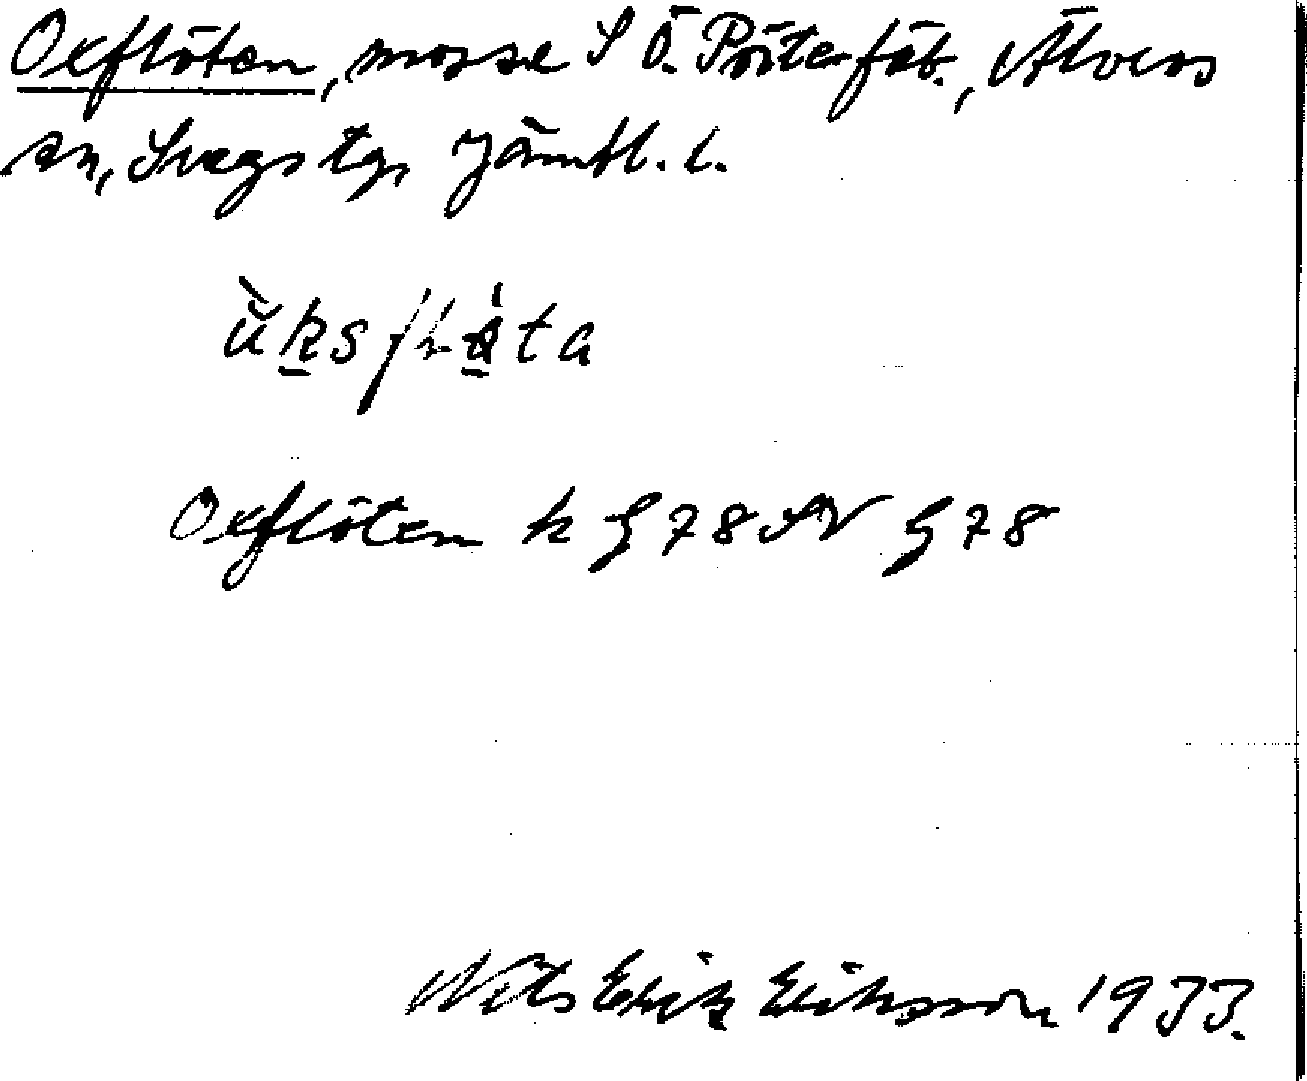 Oxflöten, mosse S Ö. Pöste fäb., Älvros
sn, Svegs tg, Jämtl. l.
ùksflö̀ta
Oxflöten k G 78 SV G 78
Nils Erik Eriksson 1933.